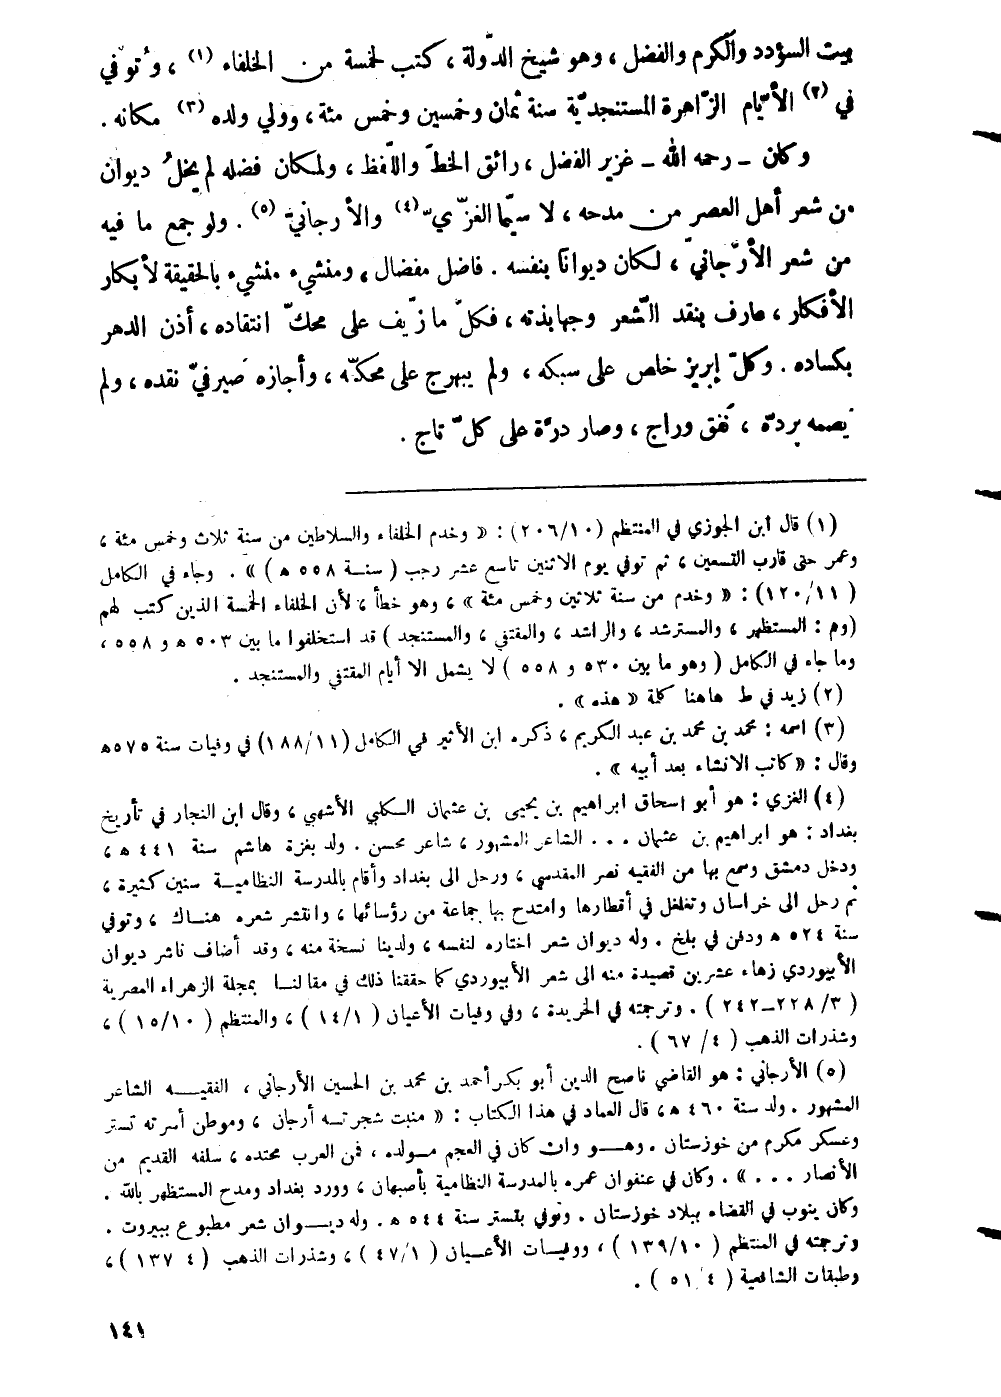 بيت السؤدد والكرم والفضل ، وهو شيخ الدّولة ، كتب لخمسة من الخلفاء (١) ، وتُوفّي
في (٢) الأيّام الزّاهرة المستنجديّة سنة ثمان وخمسين وخمس مئة ، وولي ولده (٣) مكانه .
وكان – رحمه الله – غزير الفضل ، رائق الخطّ واللّفظ ، ولمكان فضله لم يخلُ ديوان
من شعر أهل العصر من مدحه ، لا سيّما الغزّيّ (٤) والأرجانيّ (٥) . ولو جمع ما فيه
من شعر الأرّجانيّ ، لكان ديواناً بنفسه . فاضل مفضال ، ومنشىء منشىء بالحقيقة لأبكار
الأفكار ، عارف بنقد الشّعر وجهابذته ، فكلّ ما زيّف على محكّ انتقاده ، أذن الدهر
بكساده . وكلّ إبريز خلص على سبكه ، ولم يبهرج على محكّه ، وأجازه صيرفيّ نقده ، ولم
يَصمه بردّه ، نَفَق وراج ، وصار درّة على كلّ تاج .
(١) قال ابن الجوزي في المنتظم (٢٠٦/١٠) : « وخدم الخلفاء والسلاطين من سنة ثلاث وخمس مئة ،
وعمر حتى قارب التسعين ، ثم توفي يوم الاثنين تاسع عشر رجب ( سنة ٥٥٨ ه‍ ) » . وجاء في الكامل
( ١٢٠/١١) : « وخدم من سنة ثلاثين وخمس مئة » ، وهو خطأ ، لأن الخلفاء الخمسة الذين كتب لهم
(وهم : المستظهر ، والمسترشد ، والراشد ، والمقتفي ، والمستنجد ) قد استخلفوا ما بين ٥٠٣ ه‍ و ٥٥٨ ،
وما جاء في الكامل ( وهو ما بين ٥٣٠ و ٥٥٨ ) لا يشمل الا أيام المقتفي والمستنجد .
(٢) زيد في ط هاهنا كلمة « هذه » .
(٣) اسمه : محمد بن محمد بن عبد الكريم ، ذكره ابن الأثير في الكامل (١٨٨/١١) في وفيات سنة ٥٧٥ه‍
وقال : « كاتب الانشاء بعد أبيه » .
(٤) الغزي : هو أبو اسحاق ابراهيم بن يحيى بن عثمان الكلبي الأشهبي ، وقال ابن النجار في تأريخ
بغداد : هو ابراهيم بن عثمان . . . الشاعر المشهور ، شاعر محسن . ولد بغزة هاشم سنة ٤٤١ ه‍ ،
ودخل دمشق وسمع بها من الفقيه نصر المقدسي ، ورحل الى بغداد وأقام بالمدرسة النظامية سنين كثيرة ،
ثم رحل الى خراسان وتغلغل في أقطارها وامتدح بها جماعة من رؤسائها ، وانتشر شعره هناك ، وتوفي
سنة ٥٢٤ ه‍ ودفن في بلخ . وله ديوان شعر اختاره لنفسه ، ولدينا نسخة منه ، وقد أضاف ناشر ديوان
الأبيوردي زهاء عشرين قصيدة منه الى شعر الأبيوردي كما حققنا ذلك في مقالنا بمجلة الزهراء المصرية
( ٣/ ٢٢٨–٢٤٢ ) . وترجمته في الخريدة ، وفي وفيات الأعيان ( ١٤/١ ) ، والمنتظم ( ١٥/١٠ ) ،
وشذرات الذهب ( ٤/ ٦٧ ) .
(٥) الأرجاني : هو القاضي ناصح الدين أبو بكر أحمد بن محمد بن الحسين الأرجاني ، الفقيه الشاعر
المشهور . ولد سنة ٤٦٠ ه‍ ، قال العماد في هذا الكتاب : « منبت شجرته أرجان ، وموطن أسرته تستر
وعسكر مكرم من خوزستان . وهو وان كان في العجم مولده ، فمن العرب محتده ، سلفه القديم من
الأنصار . . . » . وكان في عنفوان عمره بالمدرسة النظامية بأصبهان ، وورد بغداد ومدح المستظهر بالله .
وكان ينوب في القضاء ببلاد خوزستان . وتوفي بتستر سنة ٥٤٤ ه‍ . وله ديوان شعر مطبوع ببيروت .
وترجمته في المنتظم ( ١٣٩/١٠ ) ، ووفيات الأعيان ( ٤٧/١ ) ، وشذرات الذهب ( ٤ ١٣٧ ) ،
وطبقات الشافعية ( ٤ ٥١ ) .
١٤١